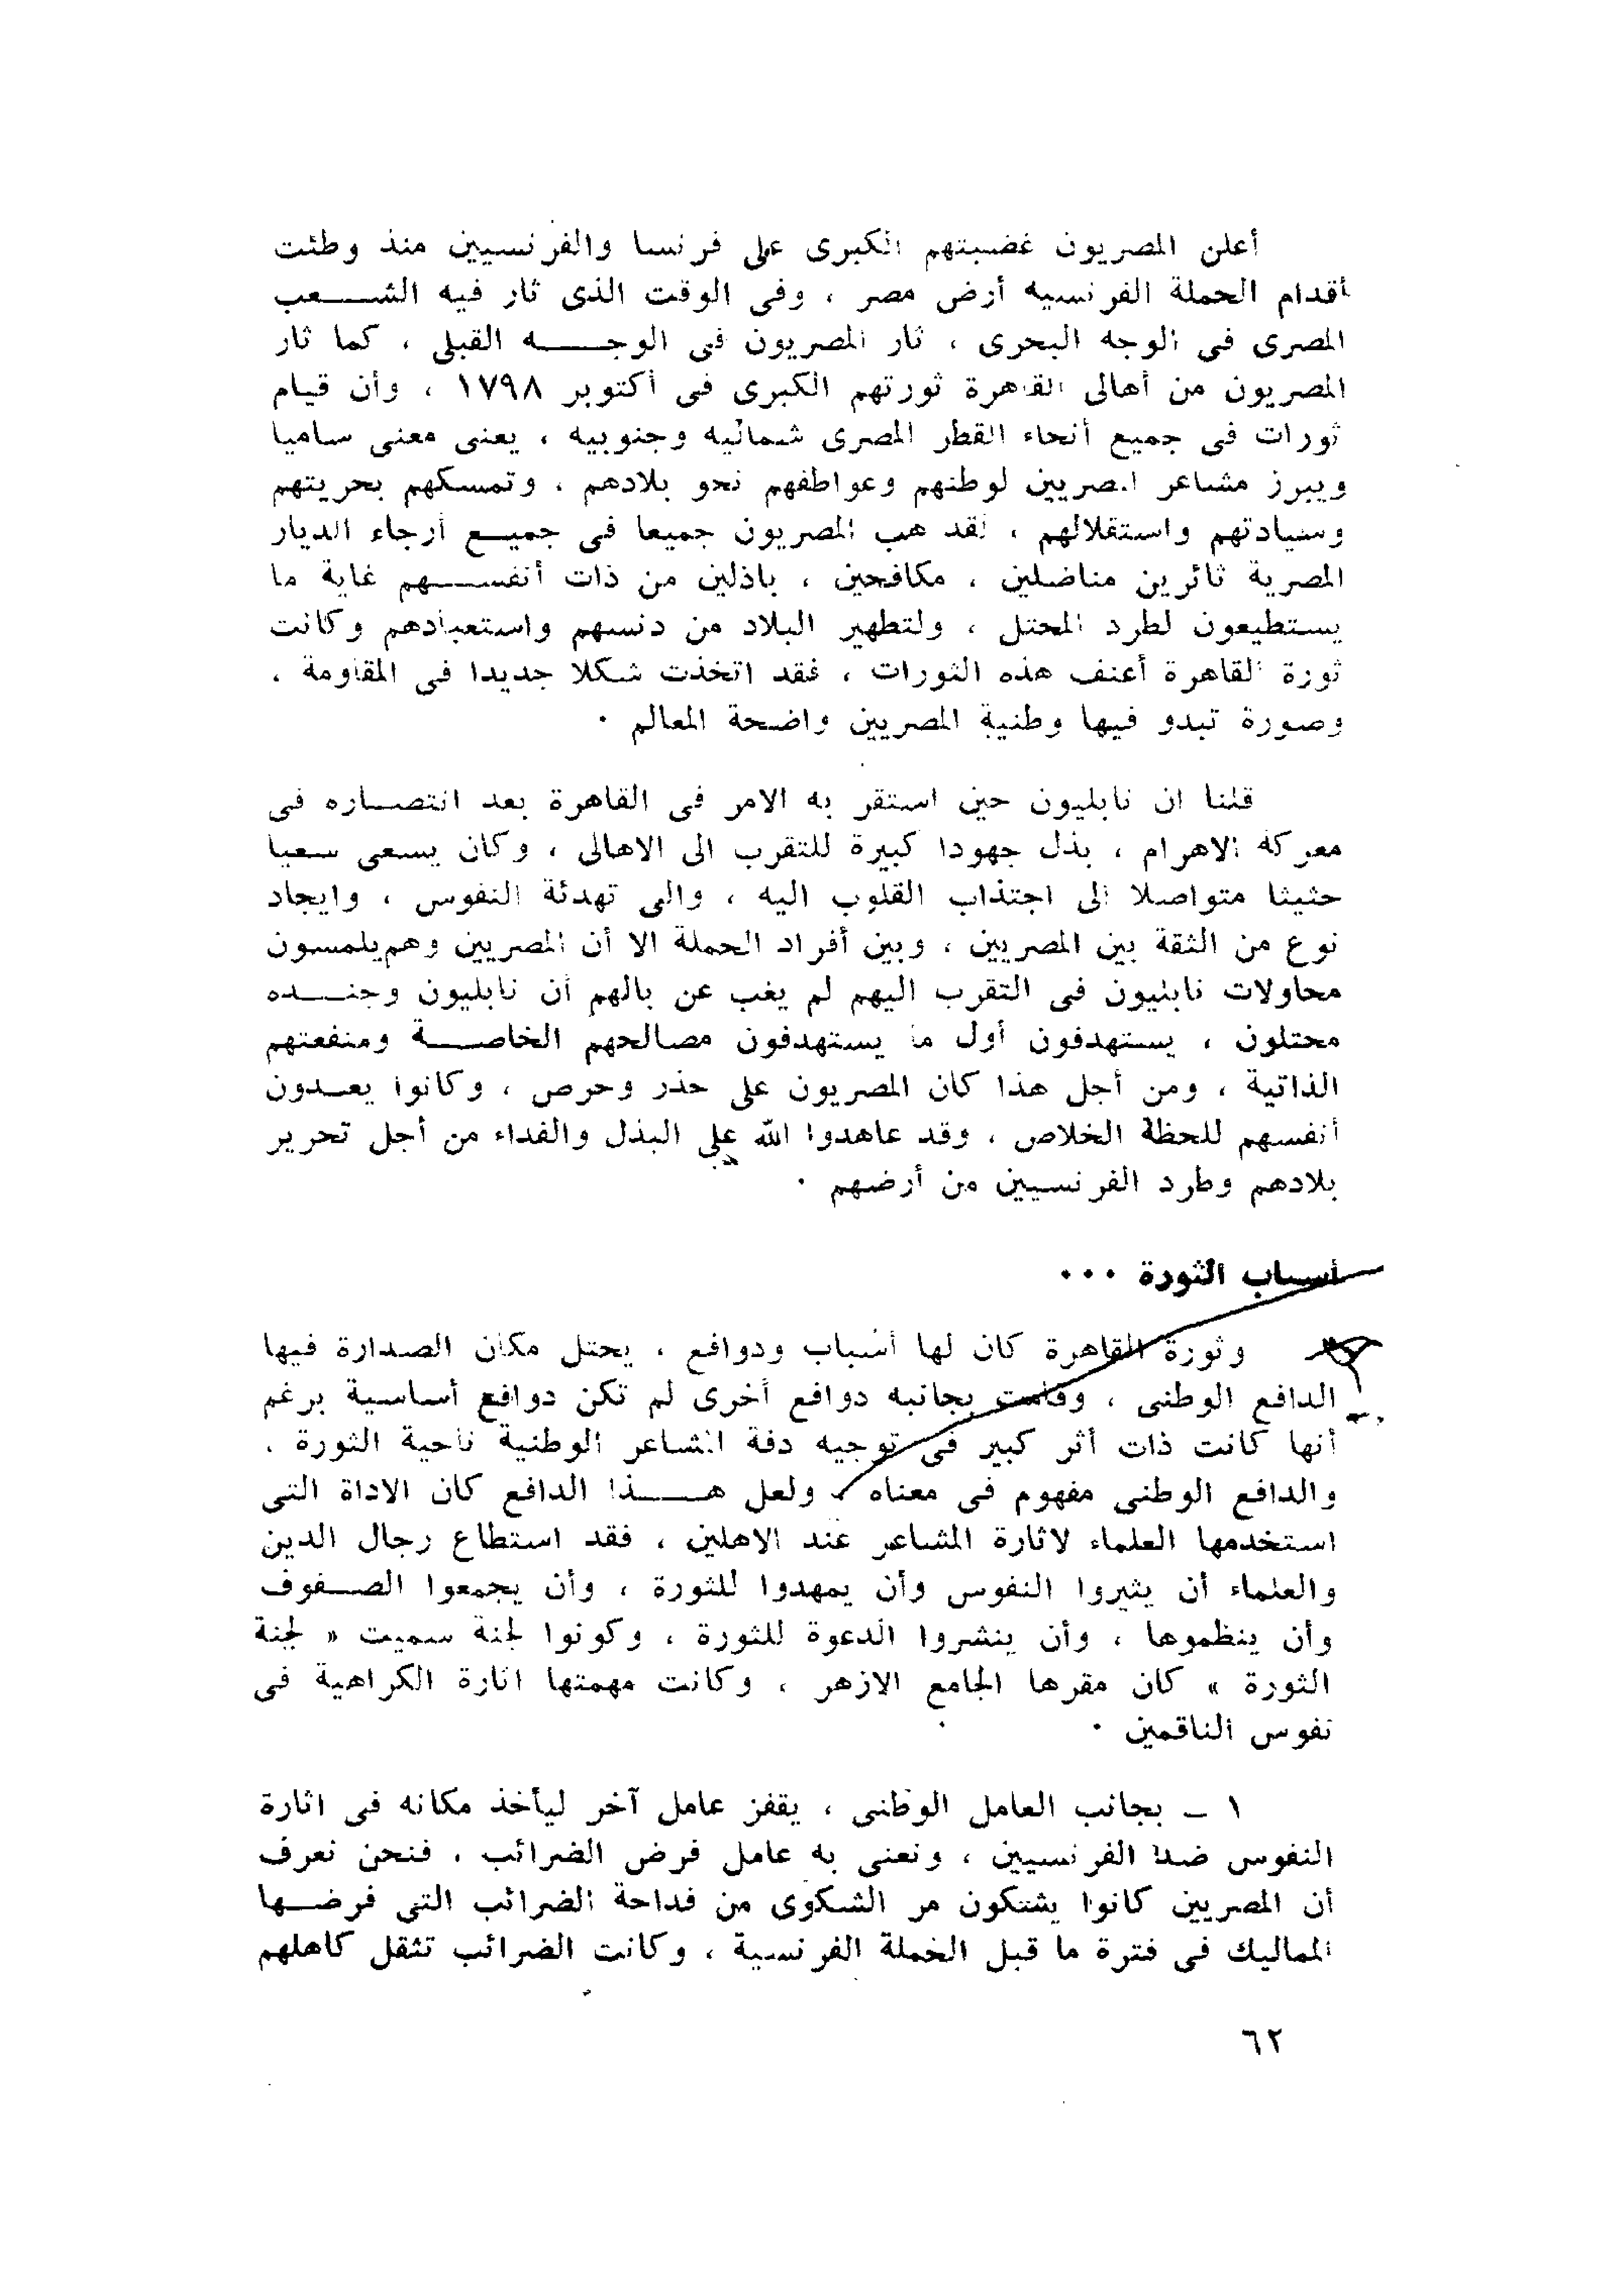 أعلن المصريون غضبتهم الكبرى على فرنسا والفرنسيين منذ وطئت
أقدام الحملة الفرنسيه أرض مصر ، وفى الوقت الذى ثار فيه الشعب
المصرى فى الوجه البحرى ، ثار المصريون فى الوجه القبلى ، كما ثار
المصريون من أهالى القاهرة ثورتهم الكبرى فى أكتوبر ١٧٩٨ ، وأن قيام
ثورات فى جميع أنحاء القطر المصرى شماليه وجنوبيه ، يعنى معنى ساميا
ويبرز مشاعر المصريين لوطنهم وعواطفهم نحو بلادهم ، وتمسكهم بحريتهم
وسيادتهم واستقلالهم ، لقد هب المصريون جميعا فى جميع أرجاء الديار
المصرية ثائرين مناضلين ، مكافحين ، باذلين من ذات أنفسهم غاية ما
يستطيعون لطرد المحتل ، ولتطهير البلاد من دنسهم واستعبادهم وكانت
ثورة القاهرة أعنف هذه الثورات ، فقد اتخذت شكلا جديدا فى المقاومة ،
وصورة تبدو فيها وطنية المصريين واضحة المعالم ٠
قلنا ان نابليون حين استقر به الامر فى القاهرة بعد انتصاره فى
معركة الاهرام ، بذل جهودا كبيرة للتقرب الى الاهالى ، وكان يسعى سعيا
حثيثا متواصلا الى اجتذاب القلوب اليه ، والى تهدئة النفوس ، وايجاد
نوع من الثقة بين المصريين ، وبين أفراد الحملة الا أن المصريين وهم يلمسون
محاولات نابليون فى التقرب اليهم لم يغب عن بالهم أن نابليون وجنده
محتلون ، يستهدفون أول ما يستهدفون مصالحهم الخاصة ومنفعتهم
الذاتية ، ومن أجل هذا كان المصريون على حذر وحرص ، وكانوا يعدون
أنفسهم للحظة الخلاص ، وقد عاهدوا الله على البذل والفداء من أجل تحرير
بلادهم وطرد الفرنسيين من أرضهم ٠
أسباب الثورة ٠٠٠
وثورة القاهرة كان لها أسباب ودوافع ، يحتل مكان الصدارة فيها
الدافع الوطنى ، وقامت بجانبه دوافع أخرى لم تكن دوافع أساسية برغم
أنها كانت ذات أثر كبير فى توجيه دفة المشاعر الوطنية ناحية الثورة ،
والدافع الوطنى مفهوم فى معناه ، ولعل هذا الدافع كان الاداة التى
استخدمها العلماء لاثارة المشاعر عند الاهلين ، فقد استطاع رجال الدين
والعلماء أن يثيروا النفوس وأن يمهدوا للثورة ، وأن يجمعوا الصفوف
وأن ينظموها ، وأن ينشروا الدعوة للثورة ، وكونوا لجنة سميت « لجنة
الثورة » كان مقرها الجامع الازهر ، وكانت مهمتها اثارة الكراهية فى
نفوس الناقمين ٠
١ ــ بجانب العامل الوطنى ، يقفز عامل آخر ليأخذ مكانه فى اثارة
النفوس ضد الفرنسيين ، ونعنى به عامل فرض الضرائب ، فنحن نعرف
أن المصريين كانوا يشتكون مر الشكوى من فداحة الضرائب التى فرضها
المماليك فى فترة ما قبل الحملة الفرنسية ، وكانت الضرائب تثقل كاهلهم
٦٢